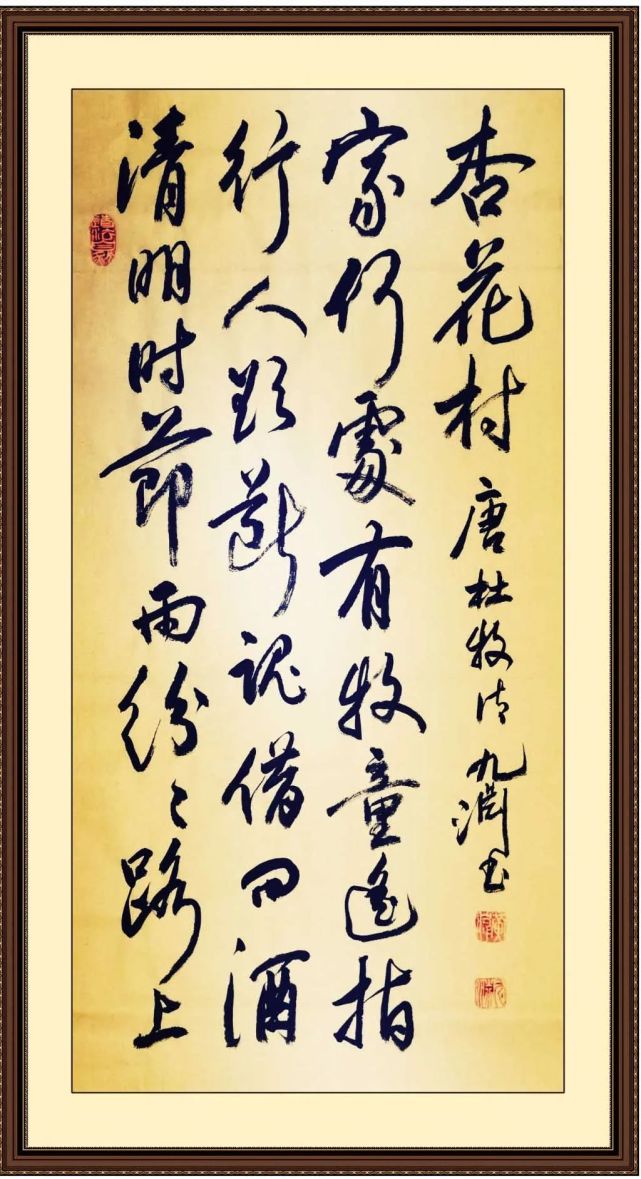 清明时節雨纷々路上
行人欲断魂借问酒
家何處有牧童遙指
杏花村 唐杜牧诗 九渊书